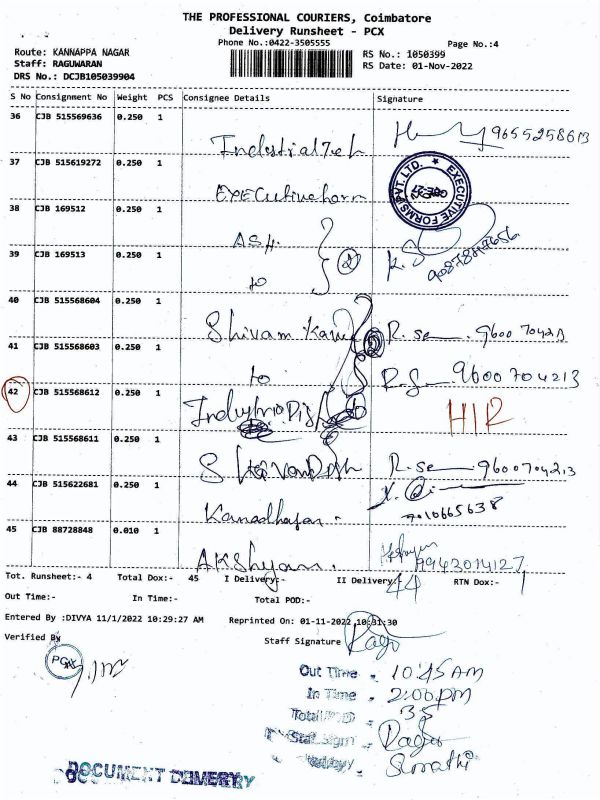 THE PROFESSIONAL COURIERS, Coimbatore
Delivery Runsheet - PCX
Phone No.:0422-3505555
Page No.:4
Route: KANNAPPA NAGAR
Staff: RAGUWARAN
DRS No.: DCJB105039904
RS No.: 1050399
RS Date: 01-Nov-2022
S No Consignment No Weight PCS Consignee Details Signature
36 CJB 515569636 0.250 1 9655258613
37 CJB 515619272 0.250 1
EXECUTIVE FORMS PVT. LTD.
38 CJB 169512 0.250 1 A.S.H.
39 CJB 169513 0.250 1 to 2 R.S
40 CJB 515568604 0.250 1 Shivam
41 CJB 515568603 0.250 1 to 9600704213
42 CJB 515568612 0.250 1 HIR
43 CJB 515568611 0.250 1 9600704213
44 CJB 515622681 0.250 1 7010665638
45 CJB 88728848 0.010 1 AKShyam. 9943014127
Tot. Runsheet:- 4 Total Dox:- 45 I Delivery:- II Delivery:- 44 RTN Dox:- 1
Out Time:- In Time:- Total POD:-
Entered By :DIVYA 11/1/2022 10:29:27 AM Reprinted On: 01-11-2022 10:31:30
Verified By Staff Signature Ragu
PCX
Out Time - 10:45 AM
In Time - 2:00 PM
Total POD - 35
Staff Sign - Ragu
Sumathi
DOCUMENT DELIVERY